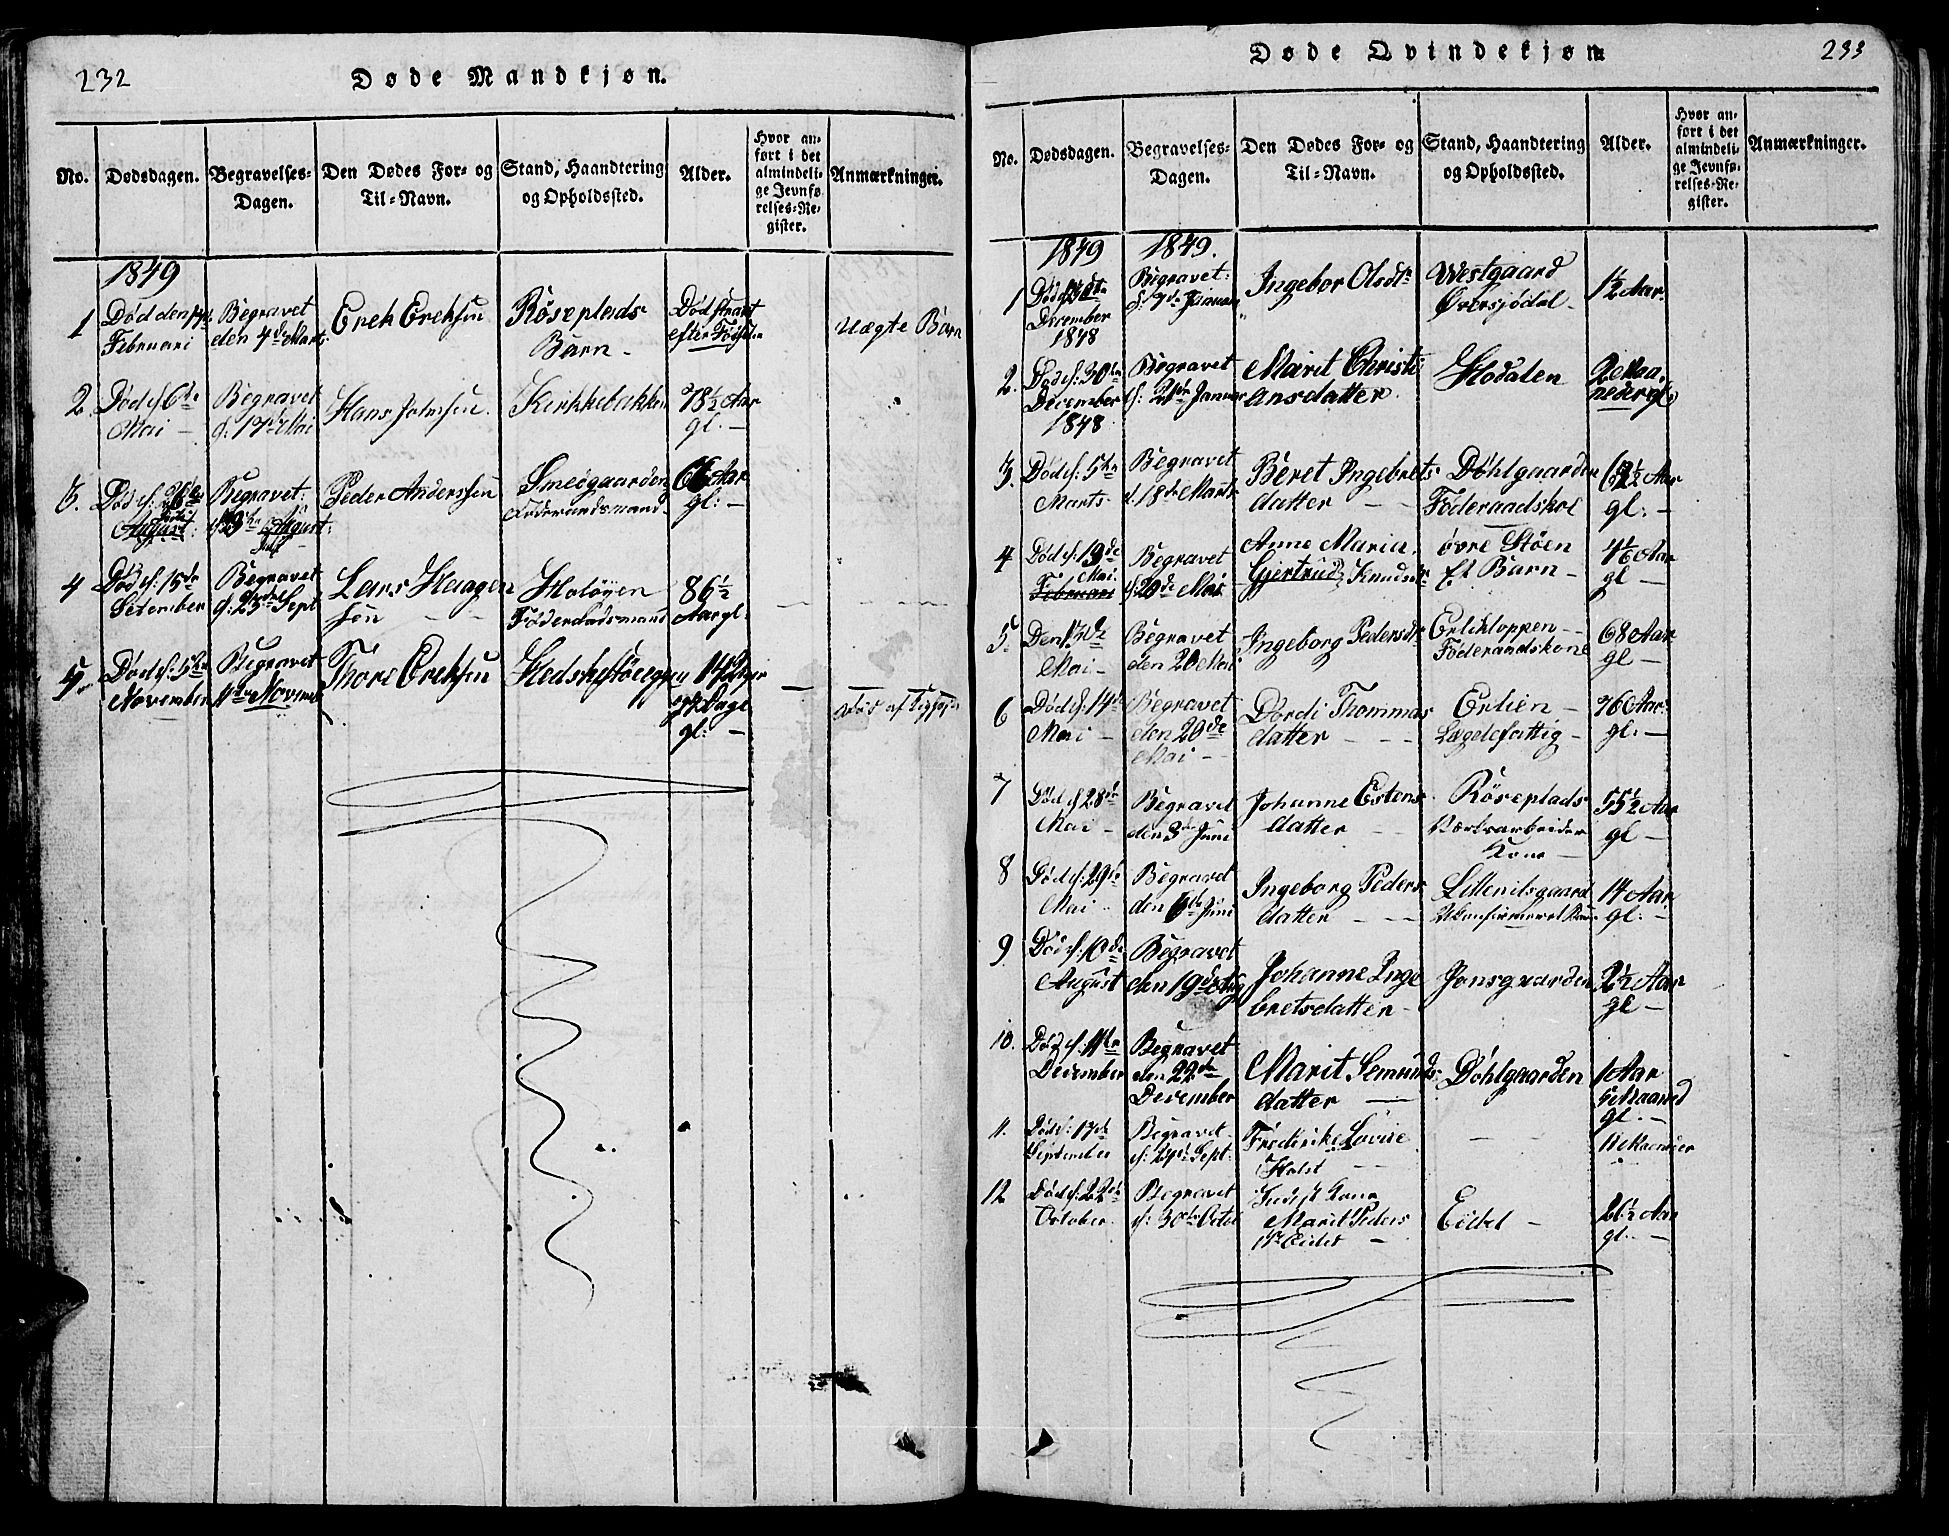 232
Døde Mandkjøn.
No.
Dødsdagen.
Begravelses-
Dagen.
Den Dødes For- og
Til-Navn.
Stand, Haandtering
og Opholdssted.
Alder.
Hvor an-
ført i det
almindeli-
ge Jevnfø-
relses-Re-
gister.
Anmærkninger.
1849
1
Død den
Februari
Begravet
den 4de Marts
Erek Ereksen
Røseplads
Barn -
Død strax
efter Fødselen
Uægte Barn
2
Død d. 6te
Mai -
Begravet
d. 17de Mai
Hans Johnsen
Kirkkebakken
78½ Aar
gl. -
3.
Død d:
August
Begravet:
Peder Anderssen
Smedgaarden
Føderaadsmand
Aar
gl: -
4
Død d: 15de
Setember
Begravet
d: 23de Sept
Lars Haagen
sen - -
Holøyen
Føderaadsmand
86½
Aar gl.
5
Død d: 5te
November
Begravet
11te Novemb
Thore Ereksen
og
Dage
gl: -
Død af
Døde Qvindekjøn
233
No.
Dødsdagen.
Begravelses-
Dagen.
Den Dødes For- og
Til-Navn.
Stand, Haandtering
og Opholdssted.
Alder.
Hvor an-
ført i det
almindeli-
ge Jevnfø-
relses-Re-
gister.
Anmærkninger.
1849
1849.
1
Død d.
December
1848
Begravet:
d: 7de Januari
Ingebor Olsdtr
Westgaard
Øversjødal -
1½ Aar.
2.
Død d: 30te
December
1848
Begravet
d: 21de Januar
Marit Christi
ansdatter.
Hodalen
2 Maa
neder gl.
3.
Død d: 5te
Marts.
Begravet
d. 18de Marts
Beret Ingebrets
datter - -
Døhlgaarden
Føderaadskol
½ Aar
gl: -
4
Død d: 13de
Mai.
Februari
Begravet
d: 20de Mai
Anne Maria
Gjertrud Knudsdtr
øvre Støen
Et Barn -
4⅙ Aar
gl -
5.
Den 13de
Mai -
Begravet
den 20 Mai
Ingeborg Pedersdtr
Erlikloppen -
Føderaadskone
68 Aar
gl -
6
Død d: 14de
Mai -
Begravet
den 20de
Mai -
Dordi Thommas
datter - -
Erlien -
Lægdefattig -
76 Aar.
gl: -
7
Død d 28de
Mai -
Begravet
den 3de Juni
Johanne Estens
datter -
Røseplads
Værksarbeider
Kone -
55½ Aar
gl -
8
Død d: 29de
Mai -
Begravet
den Juni
Ingeborg Peders
datter - -
Lillenilsgaard
Ukonfirmeret
14 Aar
gl: -
9.
Død d: 10de
August
Begravet
den 19de Aug
Johanne Inge
bretsdatter -
Jonsgaarden
2½ Aar
gl -
10.
Død d. 11te
December
Begravet
den 22de
December
Marit Semunds
datter -
Døhlgaarden
1 Aar
Maaned
gl. -
11.
Død d: 17de
September
Begravet
d: Sept.
Frederike Lovise
Holst -
- -
11 Maaneder
12
Død d: 22de
October.
Begravet
d: 30te Octob
Kone
Marit Peders
dtr Eidet -
Eidet -
26½ Aar
gl. -